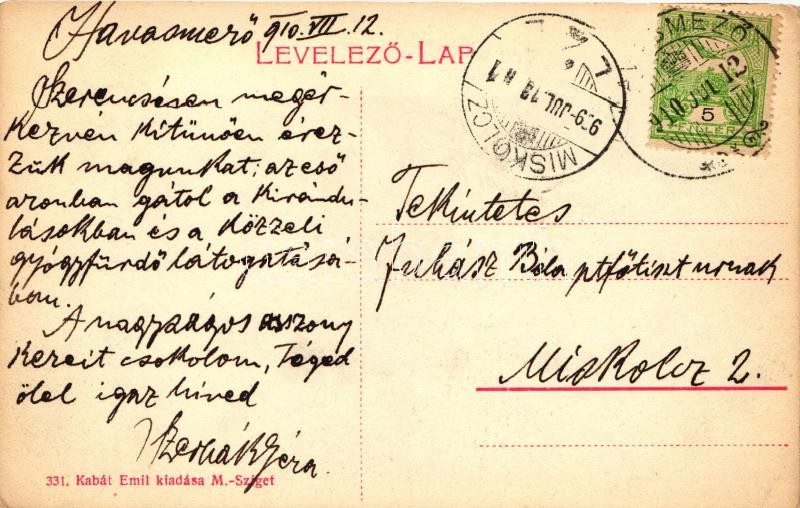 Havasmező 910.VII.12.
LEVELEZŐ-LAP
Szerencsésen megér-
kezvén kitünően érez-
zük magunkat; az eső
azonban gátol a kirándu-
lásokban és a közeli
gyógyfürdő látogatásá-
ban.
A nagyságos asszony
kezeit csokolom, Téged
ölel igaz hived
Géza
Tekintetes
Juhász Béla ptfőtiszt urnak
Miskolcz 2.
MISKOLCZ
909 JUL 13
MEZŐ
910 JUL 12
5
331. Kabát Emil kiadása M.-Sziget